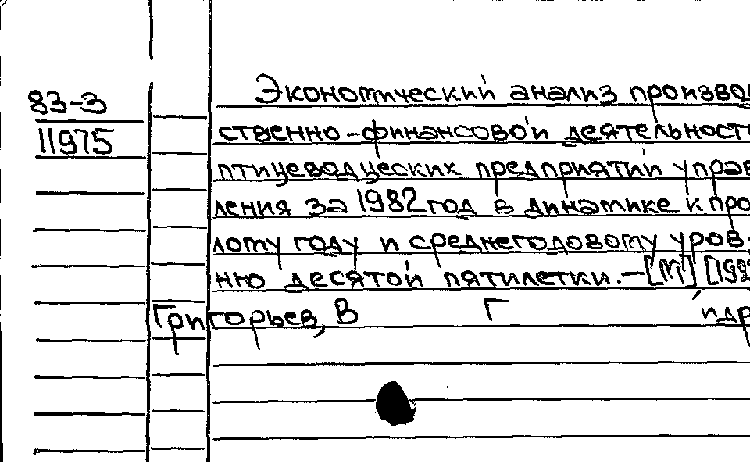 83-3
11975
Экономический анализ производ
ственно-финансовой деятельност
птицеводческих предприятий управ
ления за 1982 год в динамике к про
лому году и среднегодовому уров
ню десятой пятилетки.-[М] [198
Григорьев, В Г и др